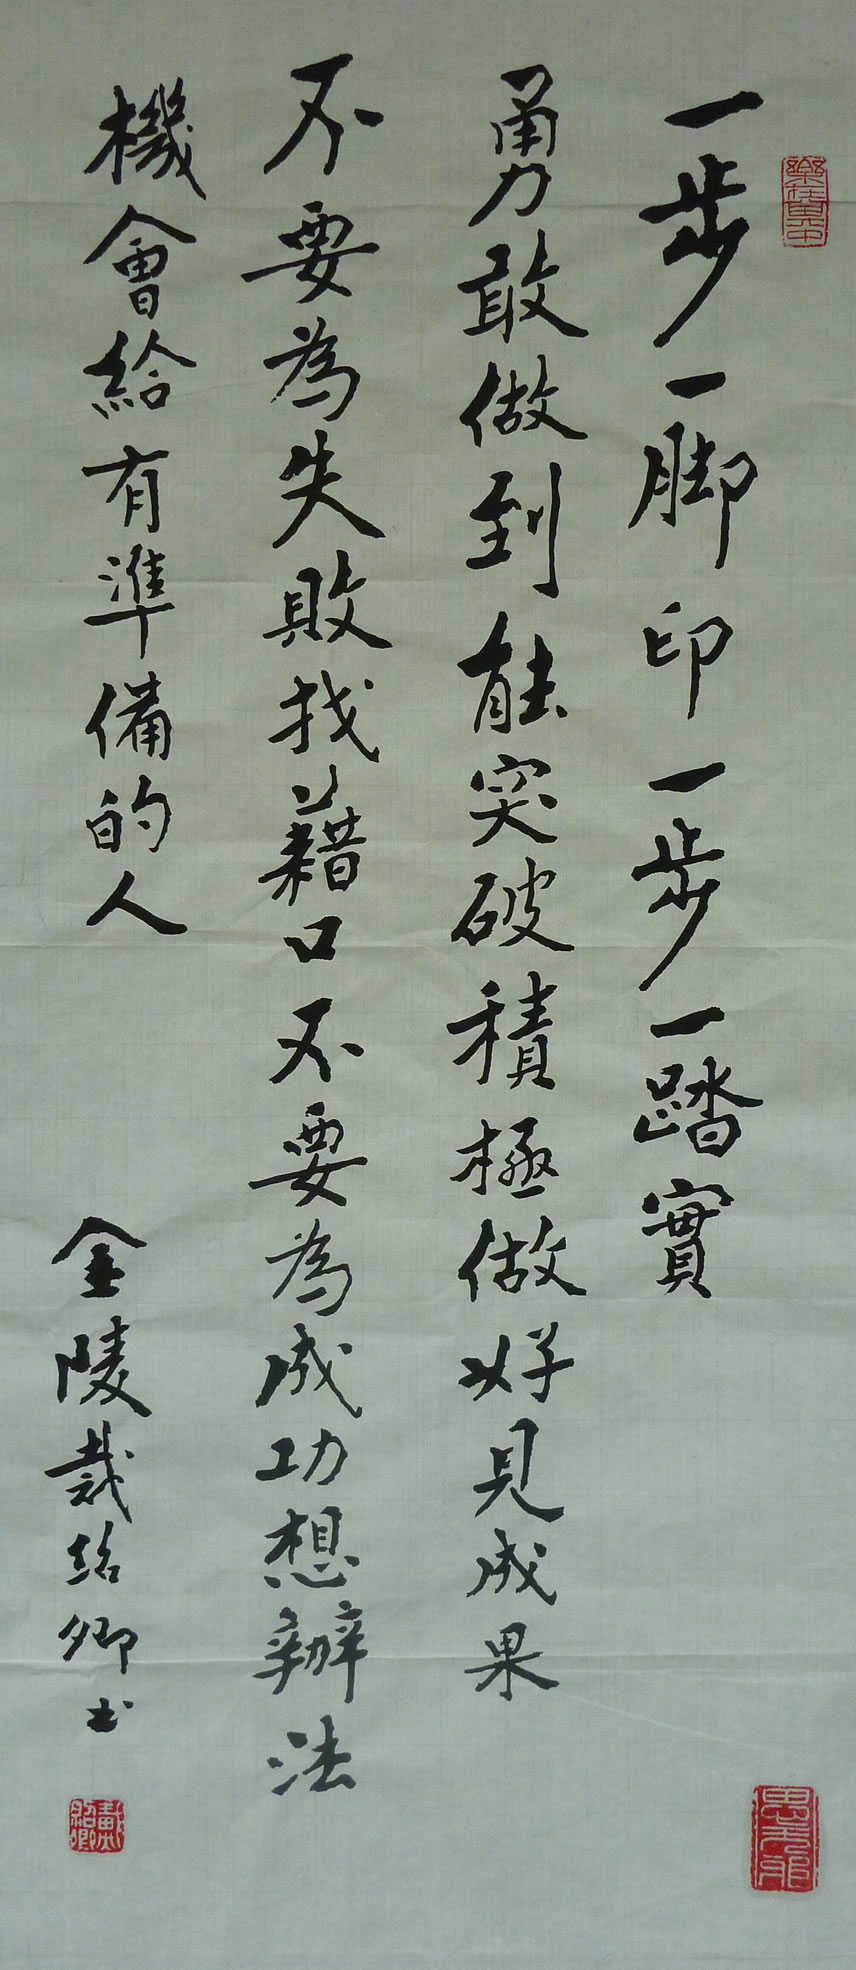 樂在其中
一步一脚印一步一踏實
勇敢做到能突破積極做好見成果
不要為失敗找藉口不要為成功想辦法
機會給有準備的人
金陵戴紹卿书
戴紹卿
思無邪